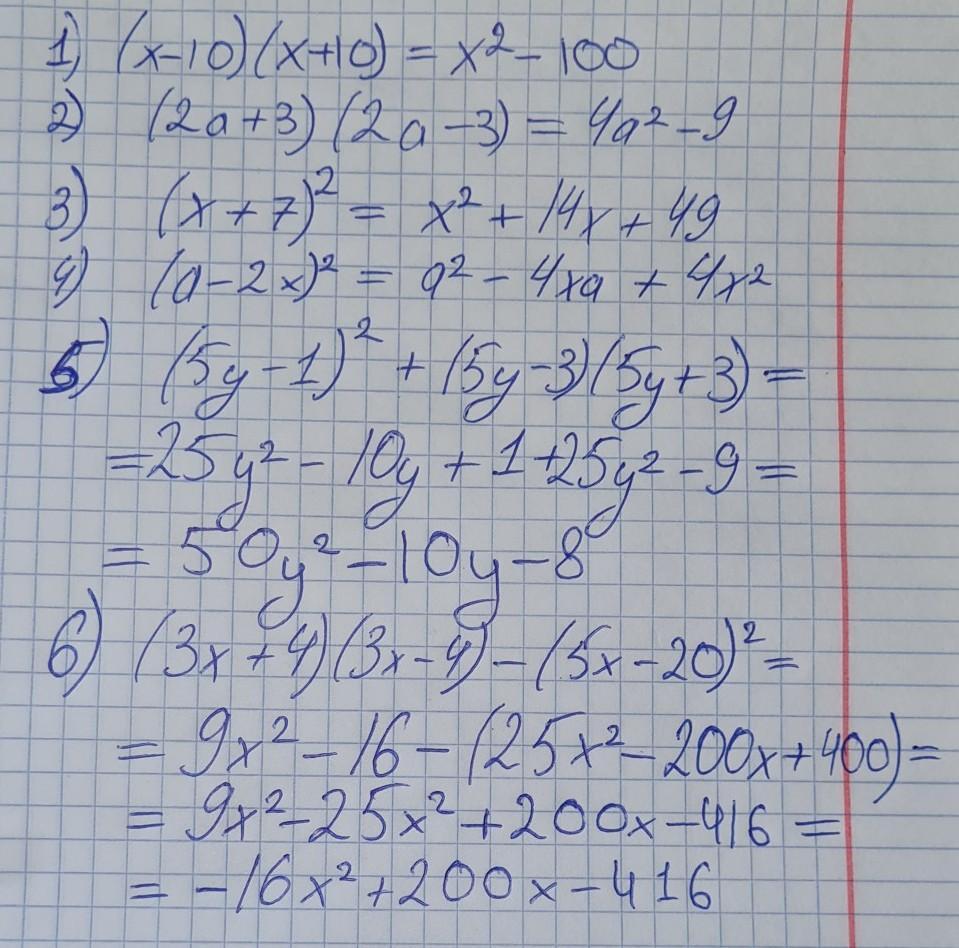 1) (x-10)(x+10) = x² - 100
2) (2a+3)(2a-3) = 4a² - 9
3) (x+7)² = x² + 14x + 49
4) (a-2x)² = a² - 4xa + 4x²
5) (5y-1)² + (5y-3)(5y+3) =
= 25y² - 10y + 1 + 25y² - 9 =
= 50y² - 10y - 8
6) (3x+4)(3x-4) - (5x-20)² =
= 9x² - 16 - (25x² - 200x + 400) =
= 9x² - 25x² + 200x - 416 =
= -16x² + 200x - 416